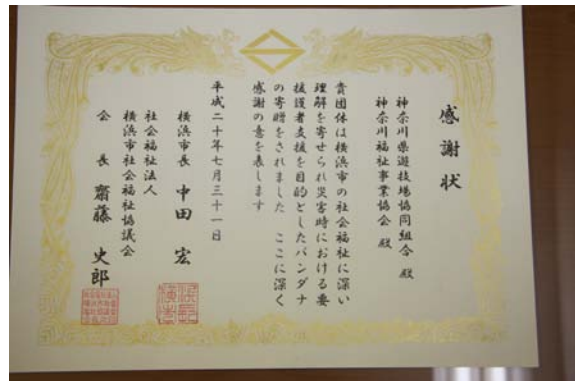 感謝状
神奈川県遊技場協同組合 殿
神奈川福祉事業協会 殿
貴団体は横浜市の社会福祉に深い
理解を寄せられ災害時における要
援護者支援を目的としたバンダナ
の寄贈をされました ここに深く
感謝の意を表します
平成二十年七月三十一日
横浜市長 中田 宏
社会福祉法人
横浜市社会福祉協議会
会長 齋藤 史郎